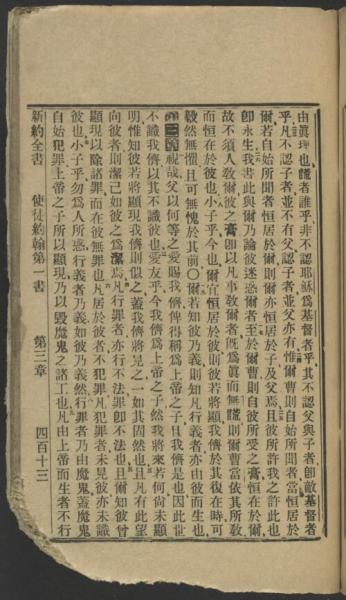 由眞理也謊者誰乎非不認耶穌爲基督者乎其不認父與子者卽敵基督者
乎凡不認子者並不有父認子者並父亦有惟爾曹則自始所聞者當恒居於
爾若自始所聞者恒居於爾則爾亦恒居於子及父焉且彼所許我之許此也
卽永生我書此與爾乃論彼迷惑爾者至於爾曹則自彼所受之膏恒在於爾
故不須人敎爾彼之膏卽以凡事敎爾者旣爲眞而無謊則爾曹當依其所敎
而恒在於彼也小子乎今也爾宜恒居於彼則彼若將顯現我儕於其復在時可
毅然無懼且可無愧於其前〇爾若知彼乃義則知凡行義者亦由彼而生也
第三章視哉父以何等之愛賜我儕俾得稱爲上帝之子且我儕是也因此世
不識我儕以其不識彼也愛友乎今我儕爲上帝之子然我將來若何尙未顯
明惟知彼若將顯現我儕則似之蓋我儕將見之一如其固然也且凡有此望
向彼者則潔己如彼之爲潔焉凡行罪者亦行不法罪卽不法也且爾知彼曾
顯現以除諸罪而在彼無罪也凡居於彼者不犯罪凡犯罪者未見彼亦未識
彼也小子乎勿爲人所惑行義者乃義如彼乃義然行罪者乃由魔鬼蓋魔鬼
自始犯罪上帝之子所以顯現乃以毀魔鬼之諸工也凡由上帝而生者不行
新約全書 使徒約翰第一書 第三章 四百十三